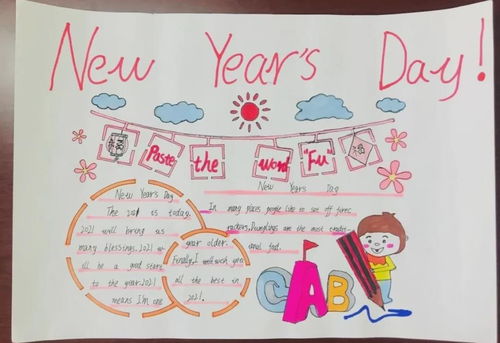 New Year's Day!
福 Paste the word "Fu" 福
New Year's Day
The 2021 is today.
2021 will bring us
many blessings. 2021 w-
ill be a good start
to the year. 2021
means I'm one
year older.
Finally, I will wish you
all the best in
2021.
New Years Day
In many places people like to set off firec-
rackers. Dumplings are the most tradit-
ional food.
CAB